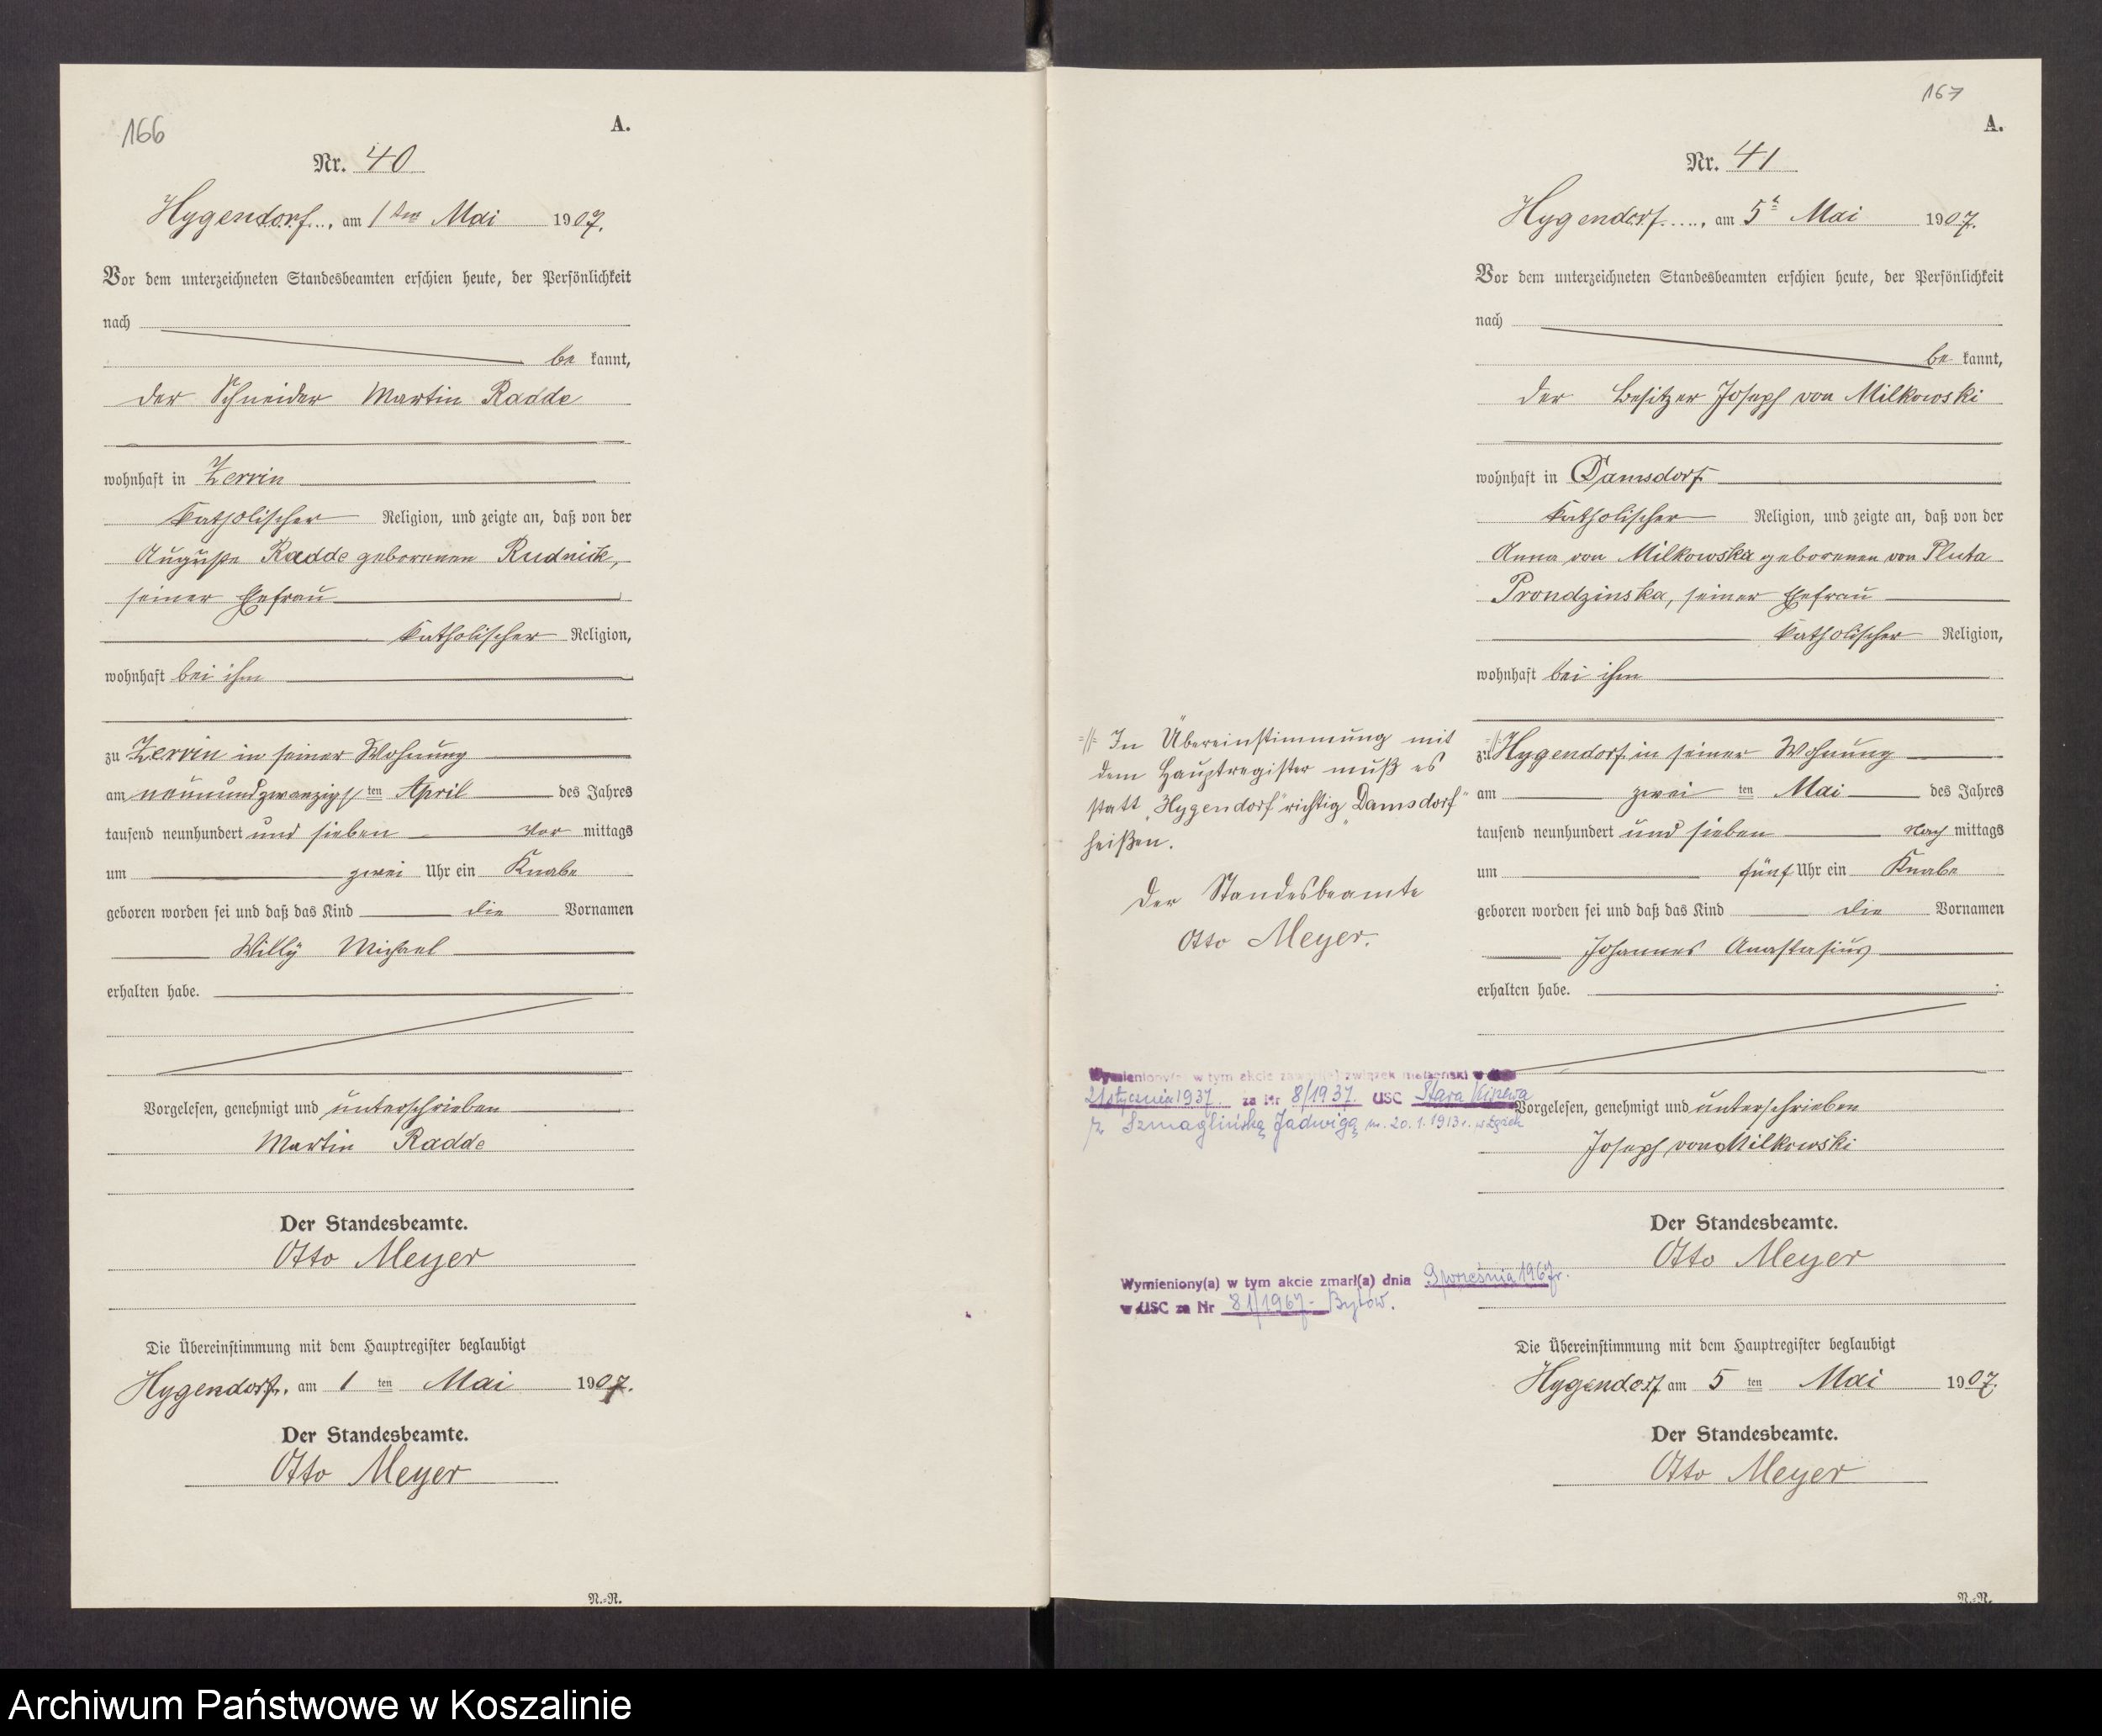 166
A.
Nr. 40
Hygendorf, am 1ten Mai 1907.
Vor dem unterzeichneten Standesbeamten erschien heute, der Persönlichkeit
nach
be kannt,
der Schneider Martin Radde
wohnhaft in Zerrin
katholischer Religion, und zeigte an, daß von der
Auguste Radde geborenen Rudnick,
seiner Ehefrau
katholischer Religion,
wohnhaft bei ihm
zu Zerrin in seiner Wohnung
am neunundzwanzigsten April des Jahres
tausend neunhundert und sieben Vor mittags
um zwei Uhr ein Knabe
geboren worden sei und daß das Kind die Vornamen
Willy Michael
erhalten habe.
Vorgelesen, genehmigt und unterschrieben
Martin Radde
Der Standesbeamte.
Otto Meyer
Die Übereinstimmung mit dem Hauptregister beglaubigt
Hygendorf, am 1 ten Mai 1907.
Der Standesbeamte.
Otto Meyer
N.=N.
167
A.
Nr. 41
Hygendorf, am 5t Mai 1907.
Vor dem unterzeichneten Standesbeamten erschien heute, der Persönlichkeit
nach
be kannt,
der Besitzer Joseph von Milkowski
wohnhaft in Damsdorf
katholischer Religion, und zeigte an, daß von der
Anna von Milkowska geborenen von Pluta
Prondzinska, seiner Ehefrau
katholischer Religion,
wohnhaft bei ihm
zu Hygendorf in seiner Wohnung
am zwei ten Mai des Jahres
tausend neunhundert und sieben Nach mittags
um fünf Uhr ein Knabe
geboren worden sei und daß das Kind die Vornamen
Johannes Anastasius
erhalten habe.
In Übereinstimmung mit
dem Hauptregister muß es
statt „Hygendorf" richtig „Damsdorf"
heißen.
Der Standesbeamte
Otto Meyer.
Wymieniony(a) w tym akcie zawarł(a) związek małżeński w dniu
21 stycznia 1937. za Nr 8/1937. USC Stara Kiszewa
z Szmaglińską Jadwigą ur. 20.1.1913 r. w
Vorgelesen, genehmigt und unterschrieben
Joseph von Milkowski
Der Standesbeamte.
Otto Meyer
Wymieniony(a) w tym akcie zmarł(a) dnia 9 września 1967 r.
w USC za Nr 81/1967 - Bytów.
Die Übereinstimmung mit dem Hauptregister beglaubigt
Hygendorf am 5 ten Mai 1907.
Der Standesbeamte.
Otto Meyer
N.=N.
Archiwum Państwowe w Koszalinie